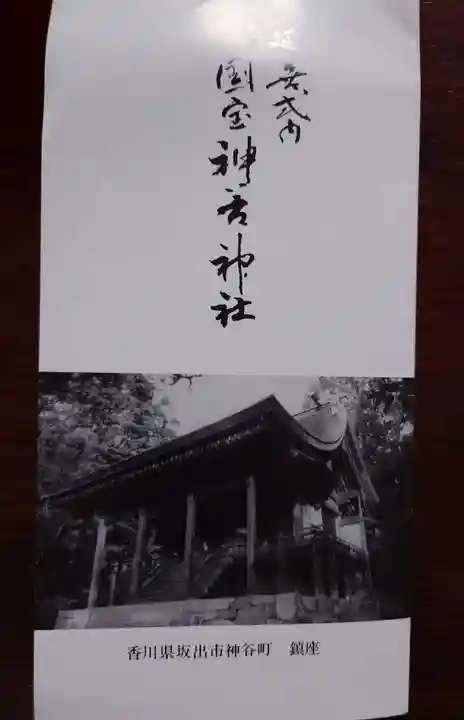 延喜式内
国宝神谷神社
香川県坂出市神谷町 鎮座